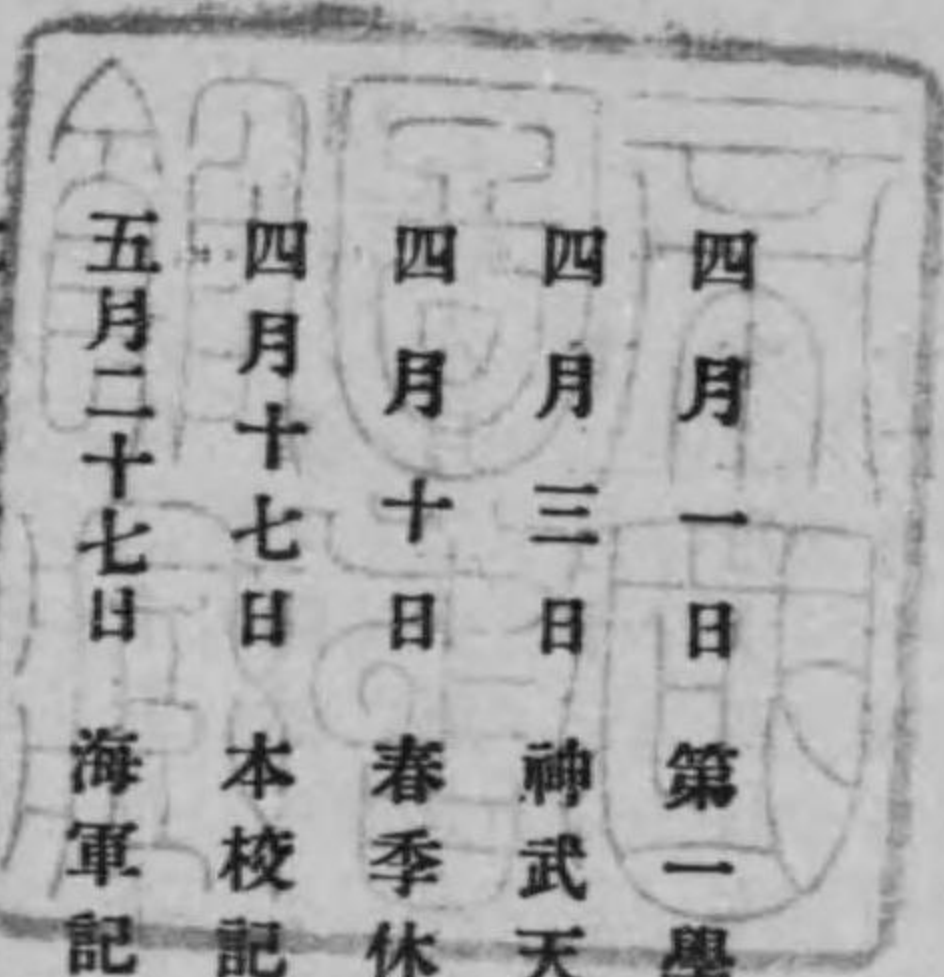 四月一日 第一學
四月三日 神武天
四月十日 春季休
四月十七日 本校記
五月二十七日 海軍記